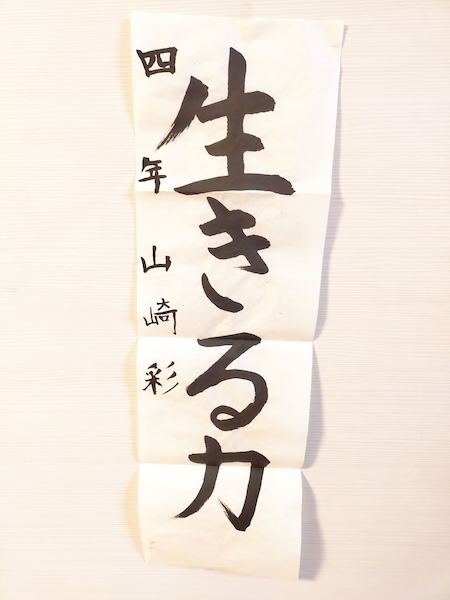 生きる力
四年 山崎彩